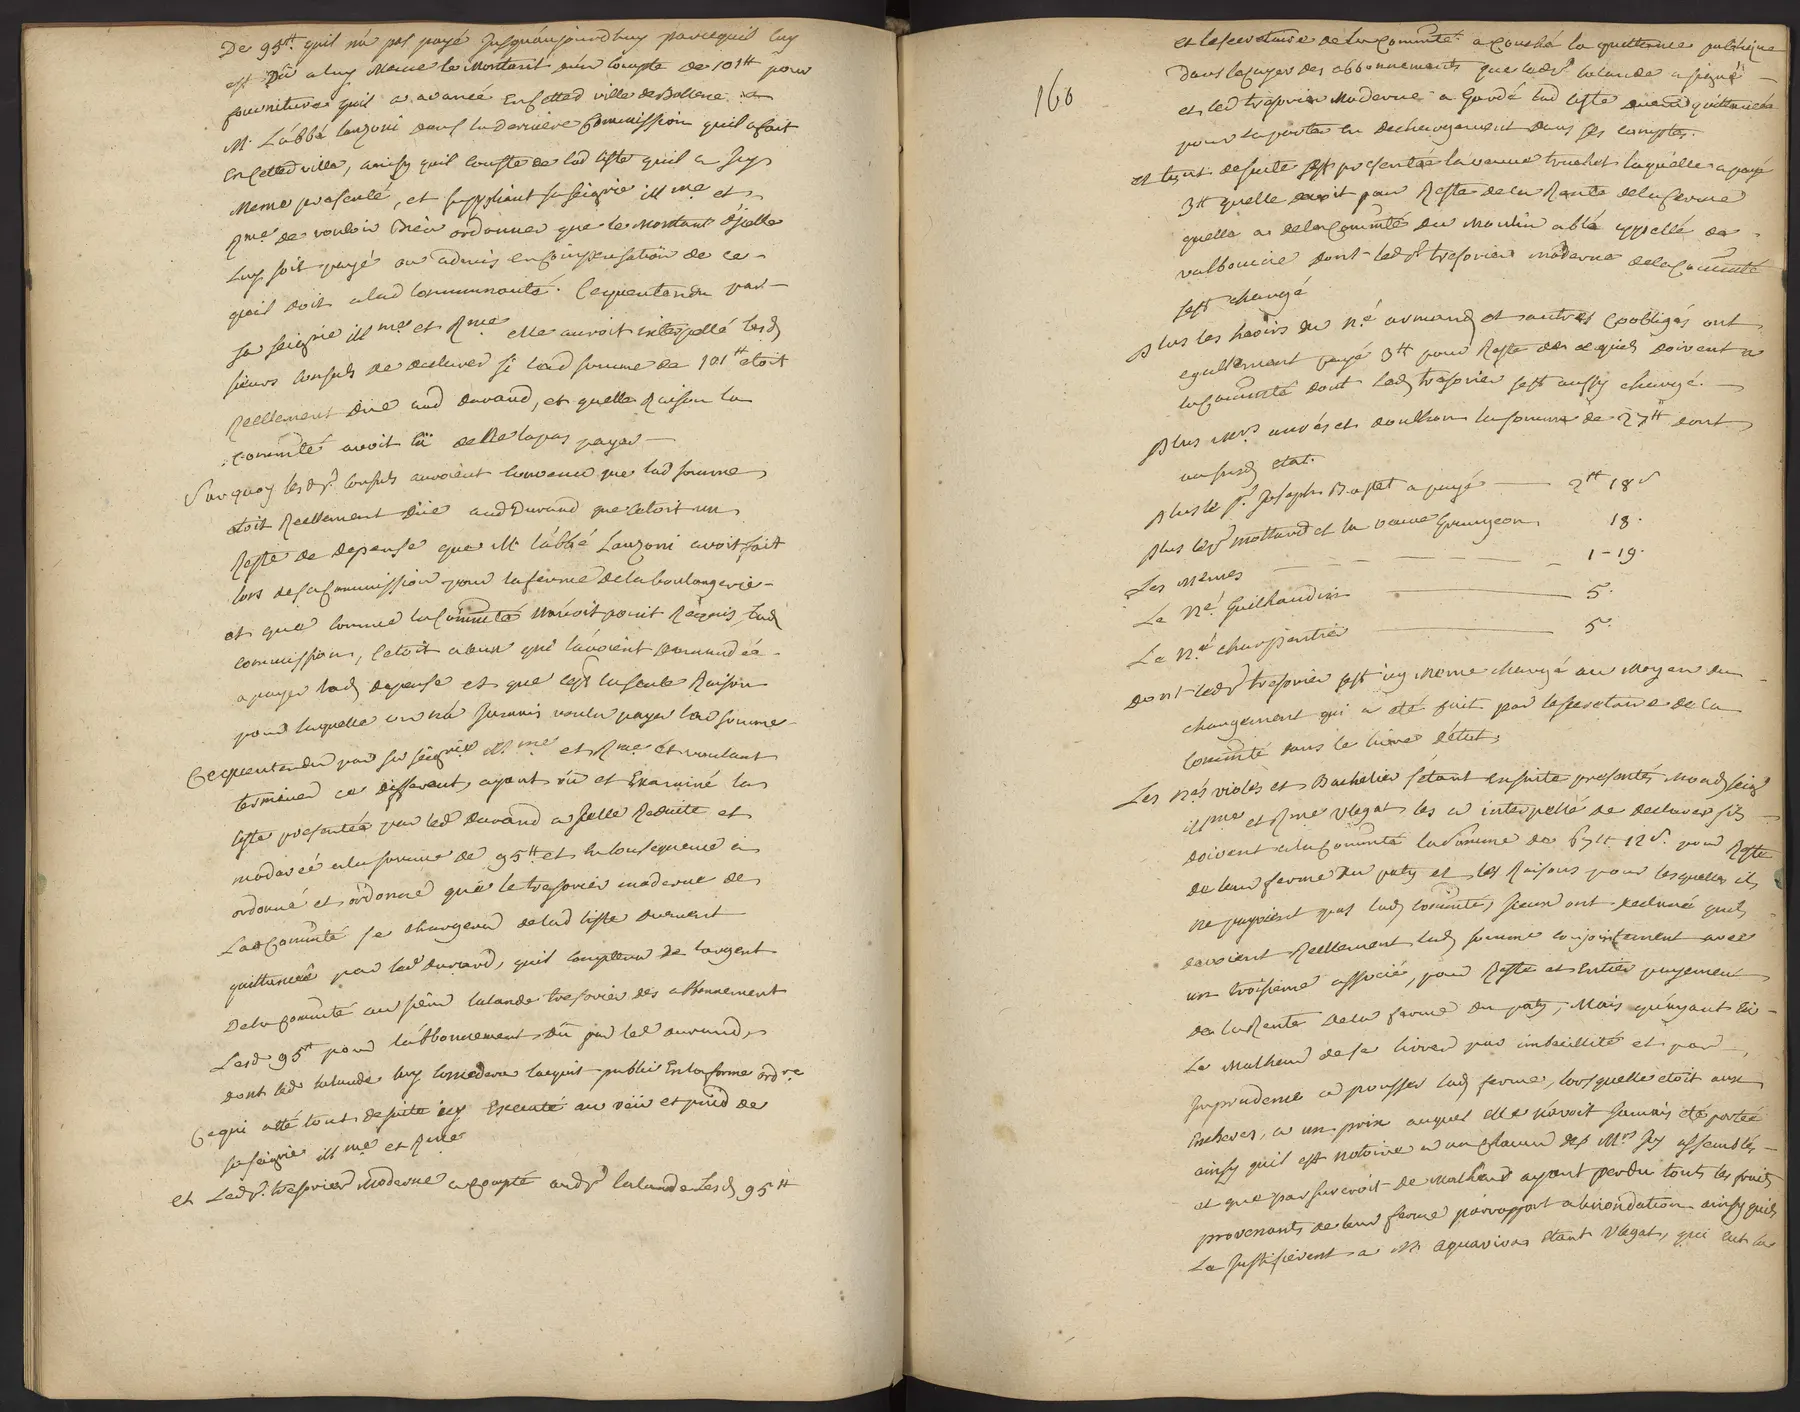 De 95ᵗᵗ. quil n'a pas payé jusqu'aujourdhuy parcequil luy
est dû a luy meme le montant d'un compte de 101ᵗᵗ pour
fourniture quil a avancé en cette d ville de Bollene a
M. L'abbé Lanzoni dans la derniere commission quil a fait
en cette d ville, ainsy quil conste de lad liste quil a Icy
meme presenté, et suppliant sa seigrie illme et
Rme de vouloir bien ordonner que le montant d'jcelle
luy soit payé ou admis en compensation de ce
quil doit a lad communauté. Cequentendu par
sa seigrie illme et Rme elle auroit interpellé lesd
sieurs consuls de declarer si lad somme de 101ᵗᵗ etoit
Reellement düe aud durand, et quelle Raison la
commté avoit eü de ne la pas payer
Surquoy lesd srs consuls auroient convenu que lad somme
etoit Reellement düe aud Durand que cetoit un
Reste de depense que Mr l'abbé Lanzoni avoit fait
lors de sa commission pour la ferme de la boulangerie
et que comme la commté n'avoit point Requis lad
commission, c'etoit a ceux qui l'avoient demandée
a payer lad depense et que c'est la seule Raison
pour laquelle on n'a jamais voulu payer lad somme
Cequentendu par sa seigrie illme et Rme et voulant
terminer ce different, ayant vü et Examiné la
liste presentée par led durand a jcelle Reduite et
moderée a la somme de 95ᵗᵗ. et en consequence a
ordonné et ordonne que le tresorier moderne de
Lad commté se chargera de lad liste duement
quittancée par led durand, quil comptera de l'argent
De la commté au sieur lalande tresorier des abonnement
Lesd 95ᵗᵗ pour l'abbonnement dû par led durand,
dont led lalande luy concedera l'acquit public en la forme ordre
Cequi a été tout de suite icy Executé au veü et present de
sa seigrie illme et Rme
et Led sr. tresorier moderne a compté aud sr lalande Lesd 95ᵗᵗ
160
et le secretaire de la commté a couché la quittance publique
Dans le cayer des abbonnements que led sr lalande a signé
et led tresorier moderne a gardé lad liste quittancée
pour la porter en dechargement dans ses comptes.
et tout de suite s'est presentée la veuve truchet laquelle a payé
3ᵗᵗ quelle devoit pour Reste de la Rente de la ferme
quelle a de la commté du moulin a blé appellé de
valbonne dont led sr tresorier moderne de la commté
s'est chargé
Plus les hoirs du né armand et autres coobligés ont
egallement payé 3ᵗᵗ pour Reste de ce quils doivent a
la commté dont led tresorier s'est aussy chargé.
Plus mrs aurés et doulhon la somme de 27ᵗᵗ dont
au susd etat.
Plus le sr Joseph Bastet a payé 2ᵗᵗ 18s
Plus les srs mottard et la veuve Grangeon 18.
Les mêmes 1-19.
Le né Guilhaudin 5.
Le né charpentier 5.
dont led sr tresorier s'est icy meme chargé au moyen du
changement qui a eté fait par le secretaire de la
commté dans le livre d'etat,
Les nés violés et Bachelier s'etant ensuite presentés mond seigr
illme et Rme Vlegat les a interpellé de declarer sils
doivent a la commté la somme de 67ᵗᵗ 12s. pour Reste
de leur ferme du paty et les Raisons pour lesquelles ils
ne payoient pas lad commté, jceux ont declaré quils
devoient Reellement lad somme conjointement avec
un troisieme associé, pour Reste et Entier payement
de la Rente de la ferme du paty, Mais qu'ayant eü
Le malheur de se livrer par imbecillité et par
Imprudence a pousser lad ferme, lorsquelle etoit aux
Encheres, a un prix auquel elle n'avoit jamais eté portée
ainsy quil est notoire a un chacun des Mrs Icy assemblés
et que par surcroit de malheur ayant perdu touts les fruits
provenants de leur ferme par rapport a linondation ainsy quils
Le justifierent a M. aquaviva etant Vlegat, qui eut la